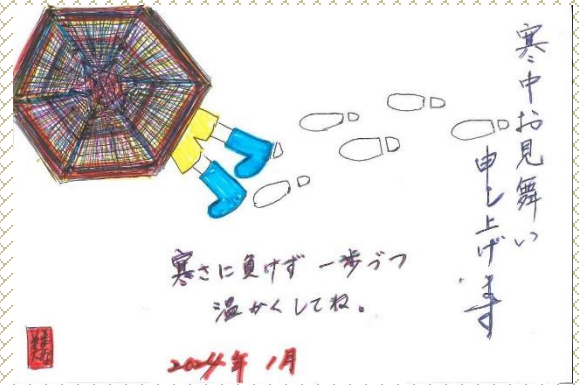 寒中お見舞い
申し上げます
寒さに負けず 一歩づつ
温かくしてね。
2024年1月